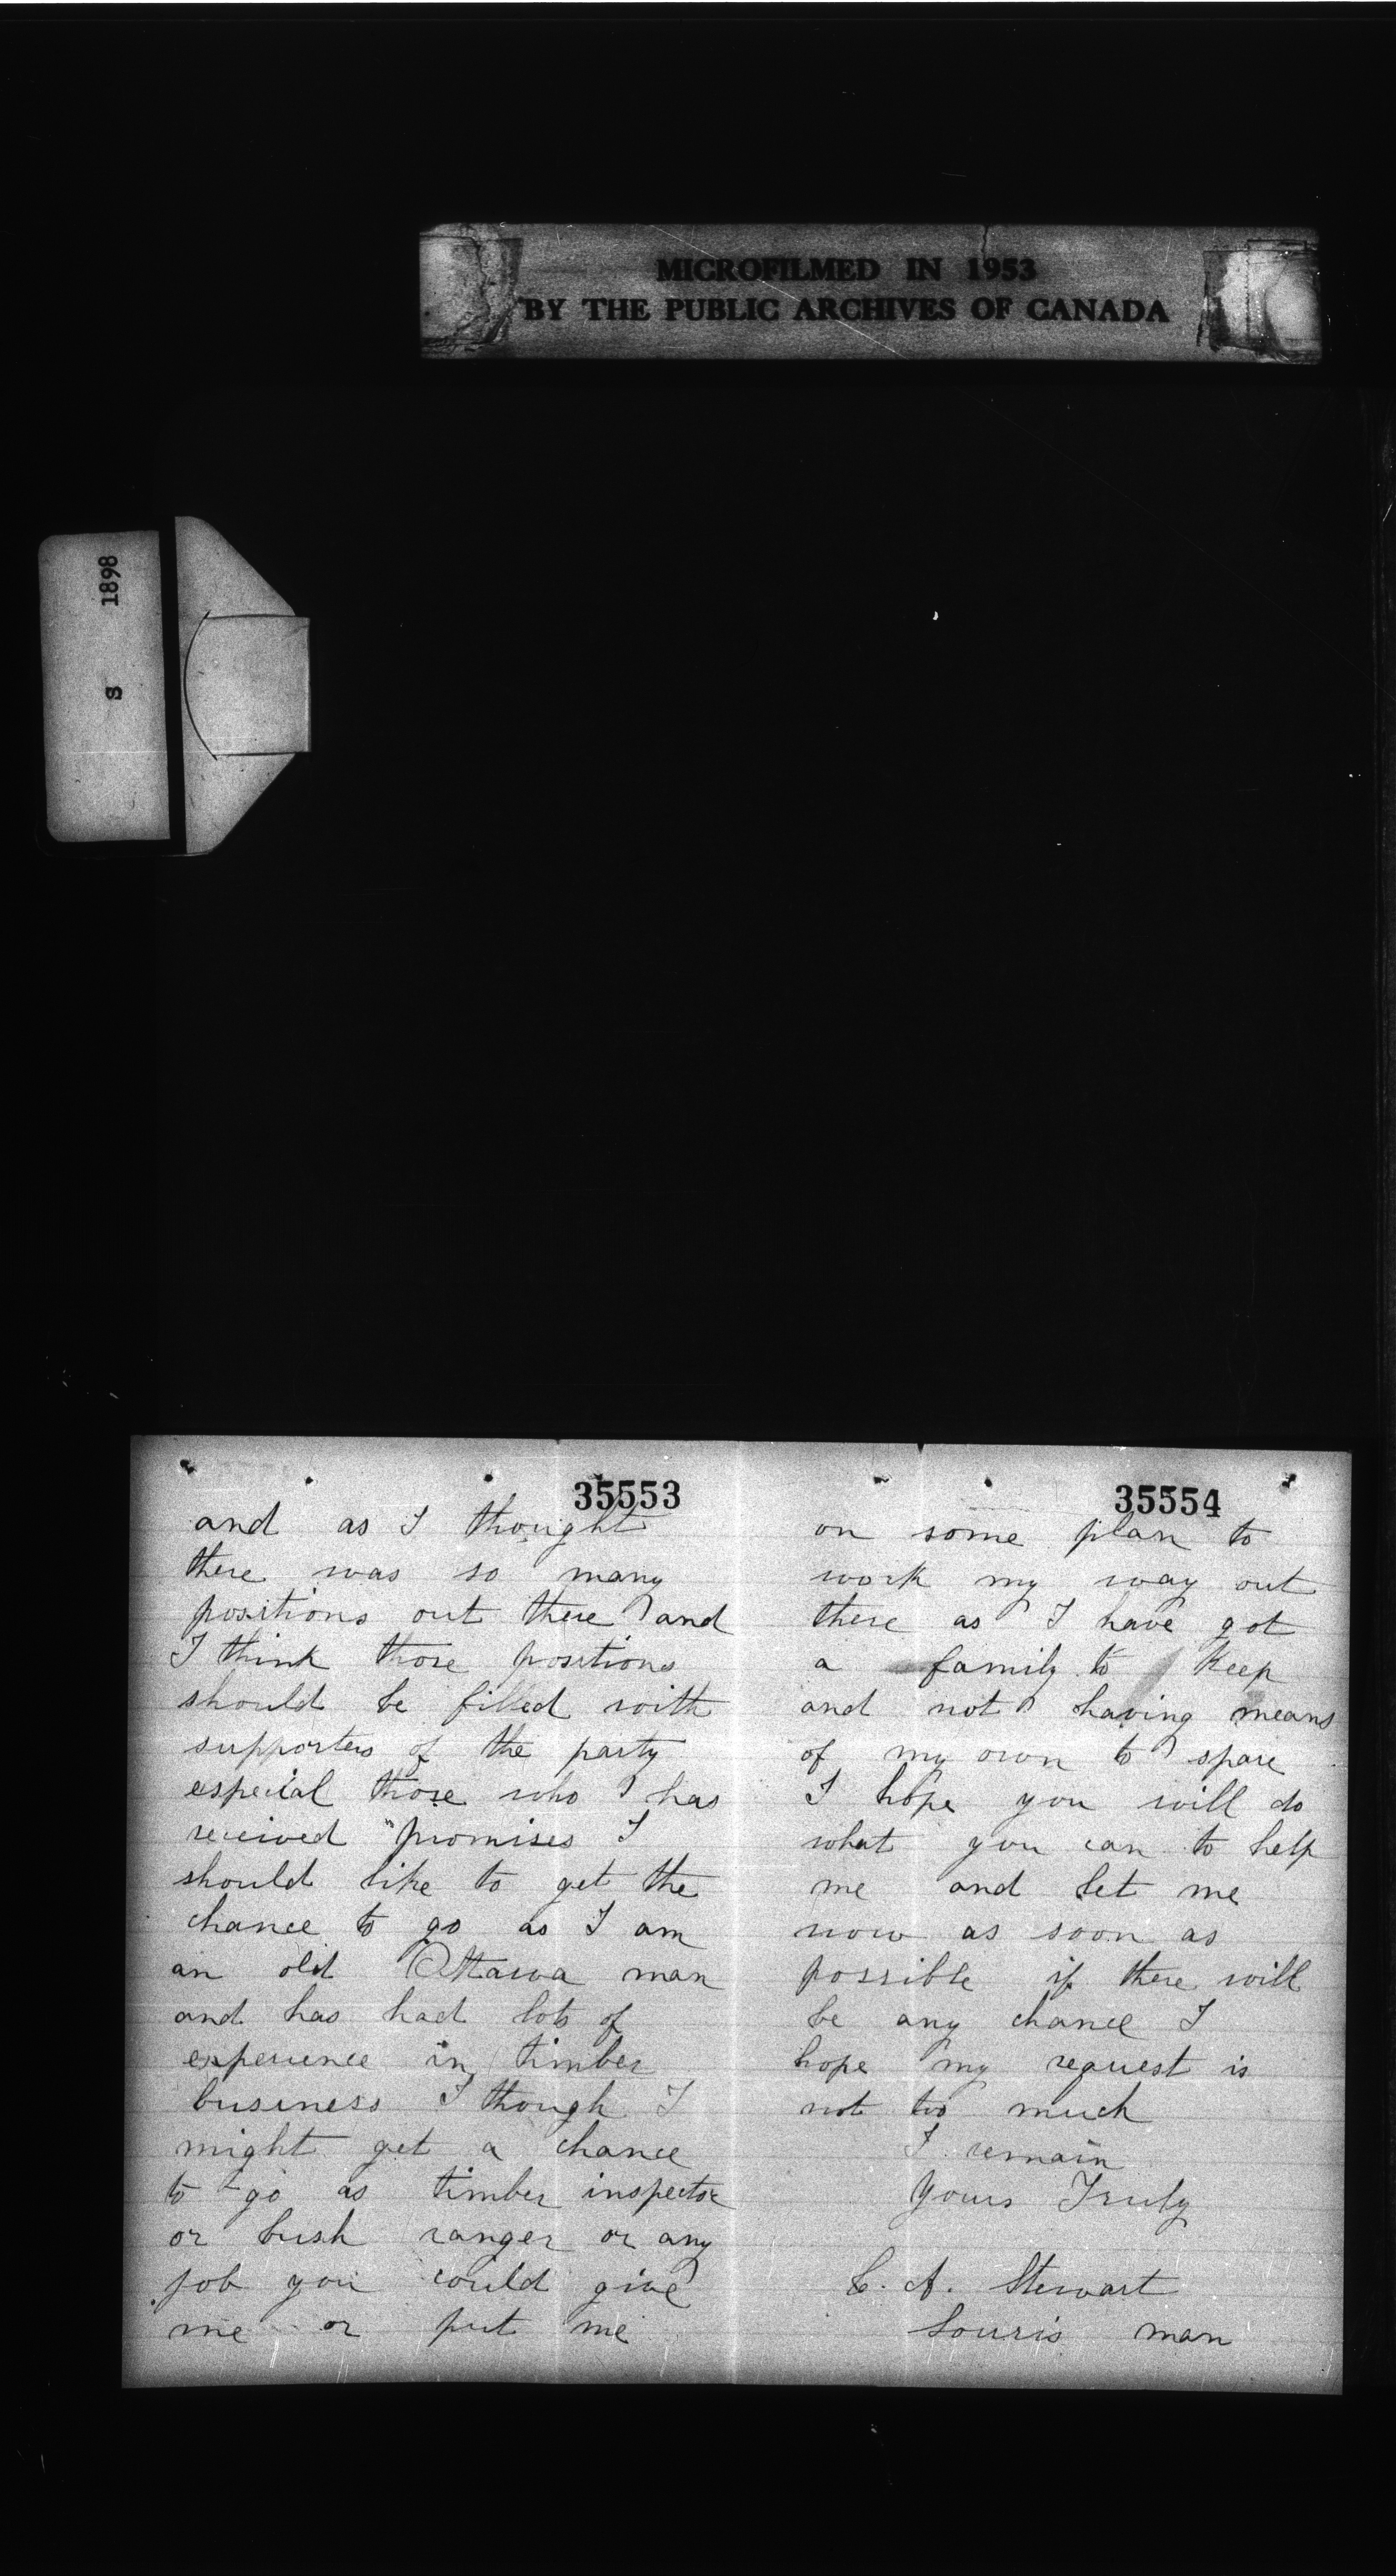 MICROFILMED IN 1953
BY THE PUBLIC ARCHIVES OF CANADA
S 1898
35553
and as I thought
there was so many
positions out there and
I think those positions
should be filled with
supporters of the party
especial those who has
received promises I
should like to get the
chance to go as I am
an old Ottawa man
and has had lots of
experience in timber
business I though I
might get a chance
to go as timber inspector
or bush ranger or any
job you could give
me or put me
35554
on some plan to
work my way out
there as I have got
a family to keep
and not having means
of my own to spare
I hope you will do
what you can to help
me and let me
now as soon as
possible if there will
be any chance I
hope my request is
not too much
I remain
Yours Truly
C. A. Stewart
Souris man